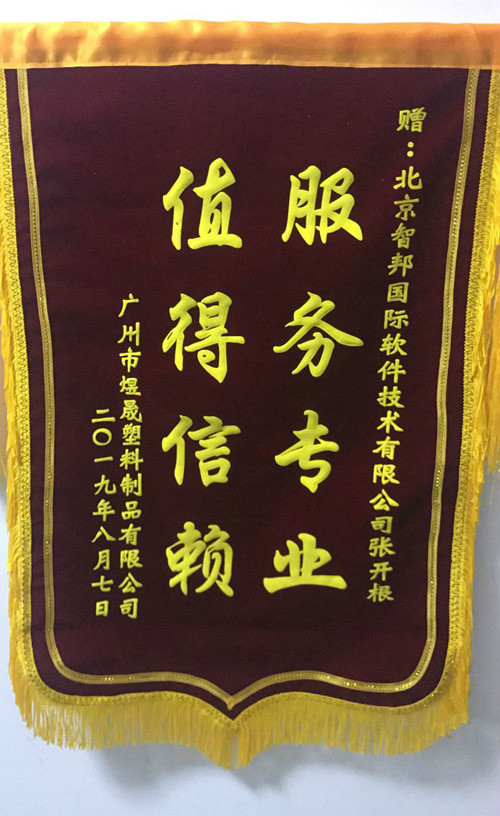 赠：北京智邦国际软件技术有限公司张开根
服务专业
值得信赖
广州市煜晟塑料制品有限公司
二〇一九年八月七日